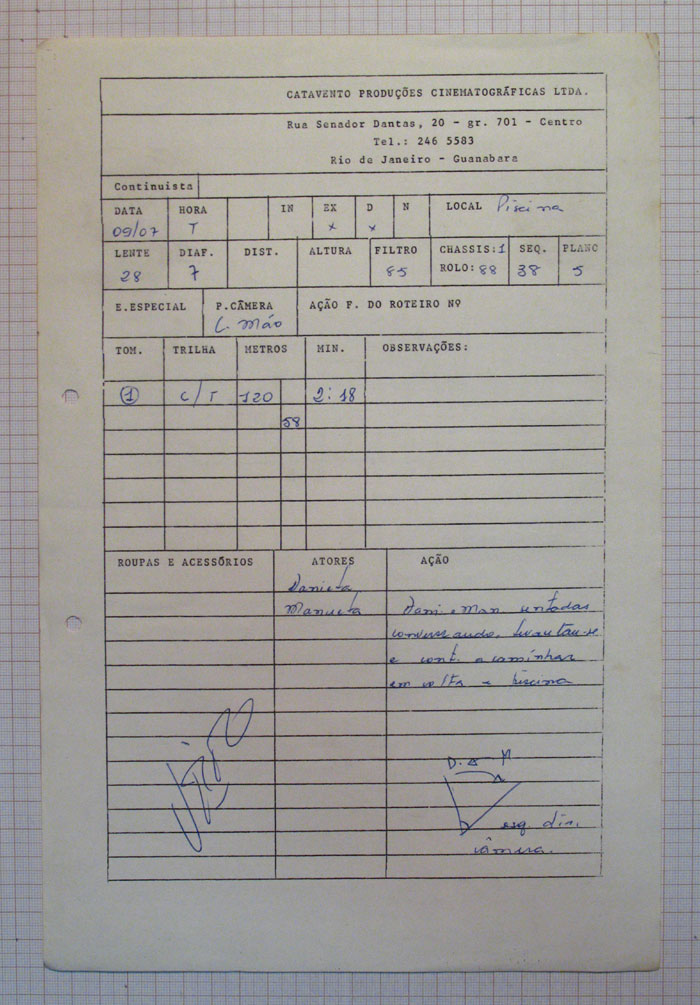 CATAVENTO PRODUÇÕES CINEMATOGRÁFICAS LTDA.
Rua Senador Dantas, 20 - gr. 701 - Centro
Tel.: 246 5583
Rio de Janeiro - Guanabara
Continuista
DATA HORA IN EX D N LOCAL Piscina
09/07 T x x
LENTE DIAF. DIST. ALTURA FILTRO CHASSIS: 1 SEQ. PLANO
28 7 85 ROLO: 88 38 5
E.ESPECIAL P.CÂMERA AÇÃO F. DO ROTEIRO Nº
C. Mão
TOM. TRILHA METROS MIN. OBSERVAÇÕES:
1 C/T 120 2:18
58
ROUPAS E ACESSÓRIOS ATORES AÇÃO
Daniela
Manuela Dani e Man. sentadas
conversando. levantam-se
e cont. a caminhar
em volta piscina
D. M
esq. dir.
câmera.